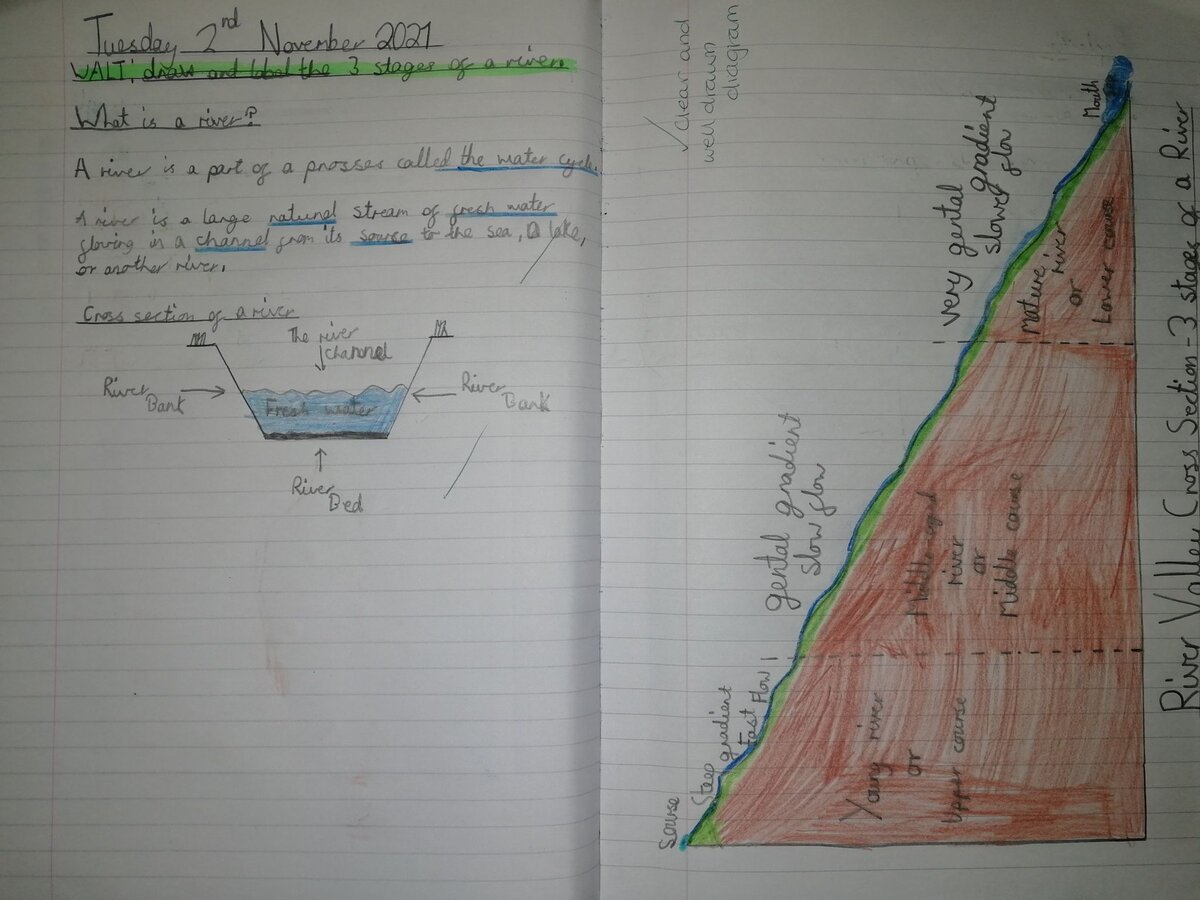 Tuesday 2nd November 2021
WALT: draw and label the 3 stages of a river.
What is a river?
A river is a part of a prosses called the water cycle.
A river is a large natural stream of fresh water
flowing in a channel from its sourse to the sea, a lake,
or another river.
Cross section of a river
The river
channel
River
Bank
Fresh water
River
Bank
River
Bed
✓ Clear and
well drawn
diagram
River Valley Cross Section - 3 stages of a River
Sourse
Steep gradient
fast flow
Young river
or
Upper course
gental gradient
slow flow
Middle-aged
river
or
Middle course
very gental gradient
slower flow
Mature
river
or
Lower course
Mouth